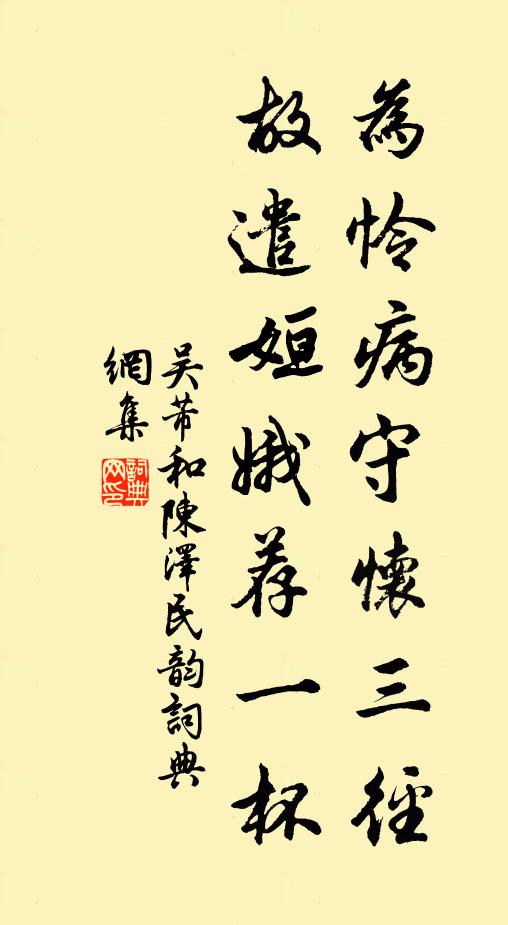 為怜病守懷三徑
故遣姮娥荐一杯
吴芾和陳澤民韵詞典
網集
詞典
网印